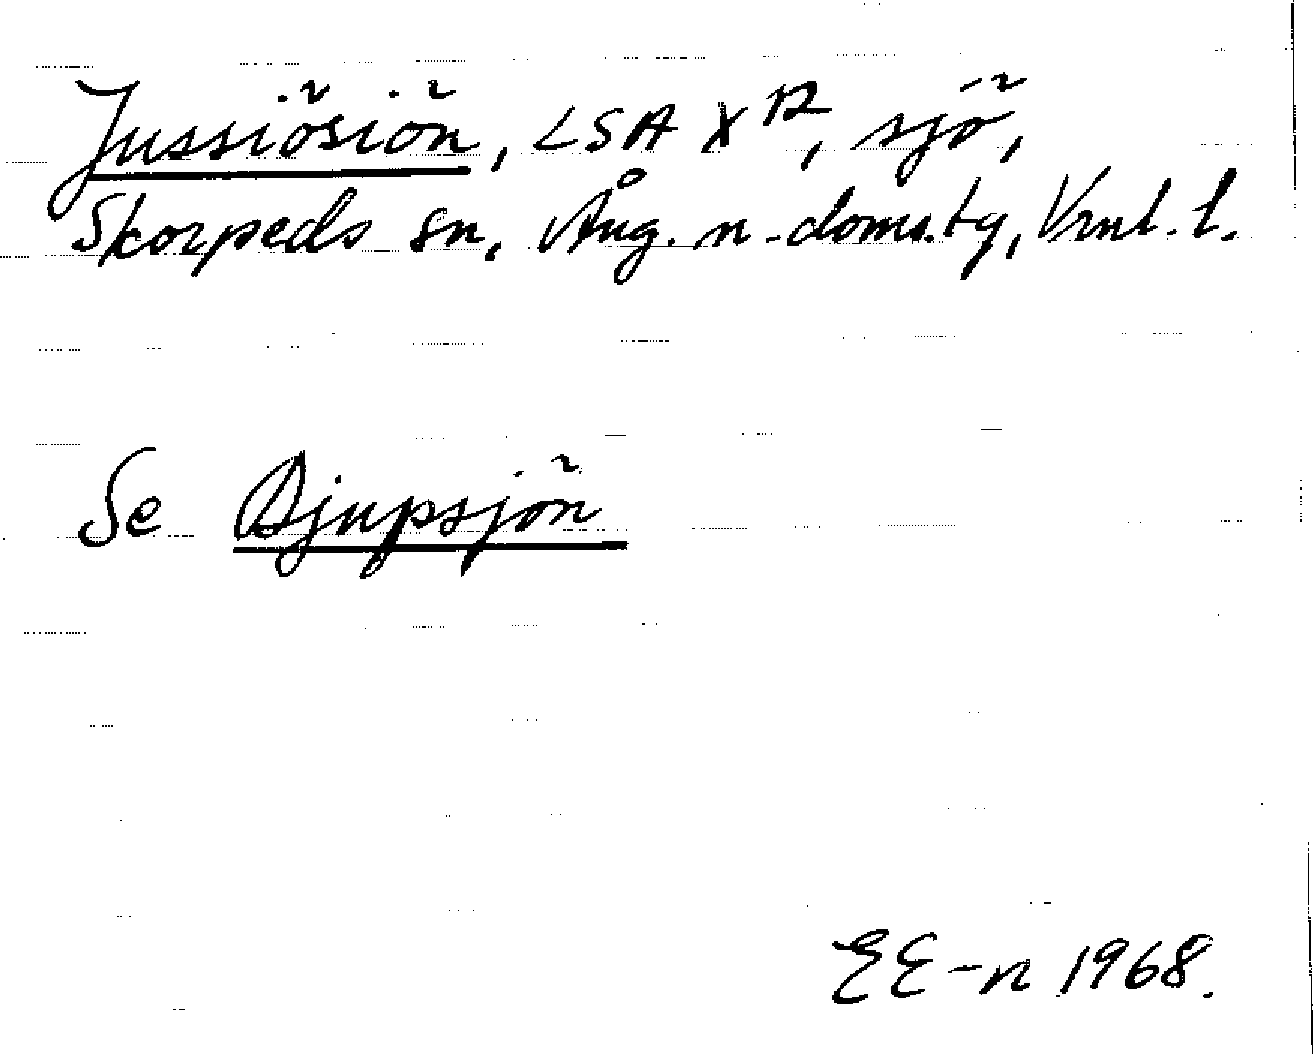 Jussiösiön, LSA X¹², sjö,
Skorpeds sn, Ång. n. doms.ty, Vrnl. l.
Se Djupsjön
EE-n 1968.